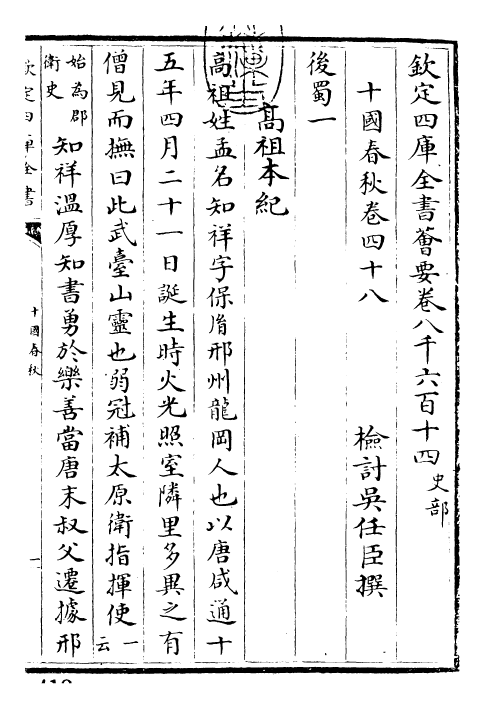 欽定四庫全書薈要卷八千六百十四史部
十國春秋卷四十八
檢討吳任臣撰
後蜀一
高祖本紀
高祖姓孟名知祥字保胤邢州龍岡人也以唐咸通十
五年四月二十一日誕生時火光照室隣里多異之有
僧見而撫曰此武臺山靈也弱冠補太原衛指揮使一云
始為郡衛史知祥溫厚知書勇於樂善當唐末叔父遷據邢
欽定四庫全書
十國春秋
一